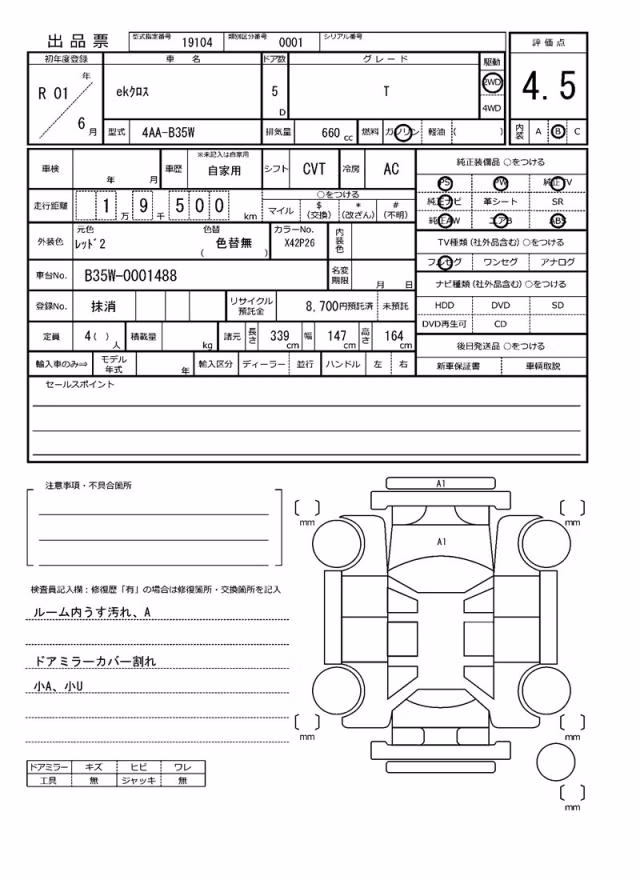 出品票 型式指定番号 19104 類別区分番号 0001 シリアル番号
評価点
4.5
内装 A B C
初年度登録 車名 ドア数 グレード 駆動
R 01 年 6 月 ekクロス 5 D T 2WD 4WD
型式 4AA-B35W 排気量 660 cc 燃料 ガソリン 軽油 ( )
車検 年 月 車歴 ※未記入は自家用 自家用 シフト CVT 冷房 AC
走行距離 1 万 9 千 5 0 0 km ○をつける
マイル $ (交換) * (改ざん) # (不明)
外装色 元色 レッド2 色替 ( 色替無 ) カラーNo. X42P26 内装色
車台No. B35W-0001488 名変期限 月 日
登録No. 抹消 リサイクル預託金 8,700円預託済 未預託
定員 4( ) 人 積載量 kg 諸元 長さ 339 cm 幅 147 cm 高さ 164 cm
輸入車のみ⇒ モデル年式 年 輸入区分 ディーラー 並行 ハンドル 左 右
純正装備品 ○をつける
PS PW 純正TV
純正ナビ 革シート SR
純正AW エアB ABS
TV種類(社外品含む) ○をつける
フルセグ ワンセグ アナログ
ナビ種類(社外品含む) ○をつける
HDD DVD SD
DVD再生可 CD
後日発送品 ○をつける
新車保証書 車輌取説
セールスポイント
注意事項・不具合箇所
検査員記入欄:修復歴「有」の場合は修復箇所・交換箇所を記入
ルーム内うす汚れ、A
ドアミラーカバー割れ
小A、小U
ドアミラー キズ ヒビ ワレ
工具 無 ジャッキ 無
A1
A1
mm
mm
mm
mm
mm